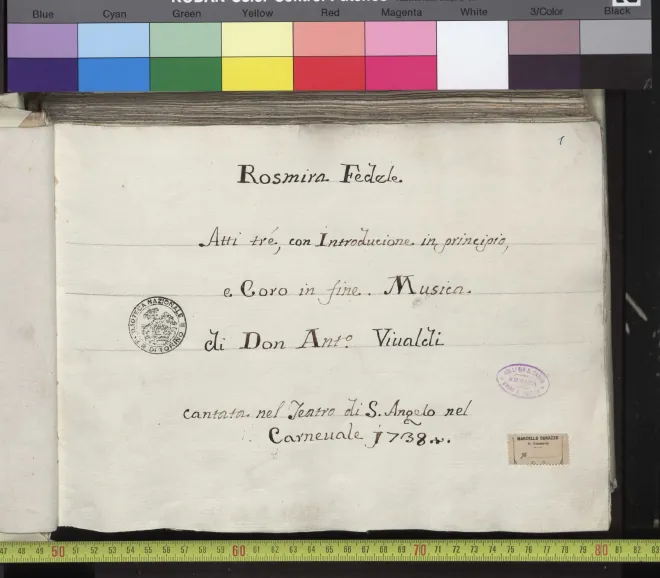 Blue Cyan Green Yellow Red Magenta White 3/Color Black
1
Rosmira Fedele.
Atti tré, con Introducione in principio,
e Coro in fine. Musica.
di Don Ant.º Viualdi
BIBLIOTECA NAZIONALE DI TORINO
cantata nel Teatro di S. Angelo nel
Carneuale 1738
47 48 49 50 51 52 53 54 55 56 57 58 59 60 61 62 63 64 65 66 67 68 69 70 71 72 73 74 75 76 77 78 79 80 81 82 83